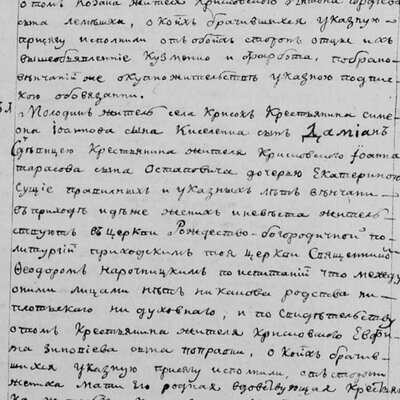 о томъ Козака жителя Крисковского
сына , о коихъ брачившихся указную
присягу исполнили отъ обоихъ сторонъ отцы ихъ
вышеобъявленніе Кузмѣнко и , по бракo
вѣнчаніи же о купножительствѣ указною подпис
кою обовязанни.
Молодикъ житель села Крисокъ Крестьянина Симе
она Іоаннова сына Киселенка сынъ Даміанъ
съ дѣвицею Крестьянина жителя Крисковского Іоанна
Тарасова сына Остаповича дочерью Екатериною
сущіе правилныхъ и указныхъ лѣтъ вѣнчани
въ приходѣ идѣже женихъ и невѣста житель
ствуютъ въ церкви Рождество-богородичной по
литургіи приходскимъ тоя церкви Священникомъ
Феодоромъ Нарочницкимъ по испитаніи что между
оними лицами нѣтъ никакова родства ни
плотьскаго ни духовнаго, и по свидѣтельству
о томъ Крестьянина жителя Крисковского Евфи
ма Зиновіева сына , о коихъ брачив
шихся указную присягу исполнили, отъ стороны
жениха мати его родная вдовствующая Крестьян